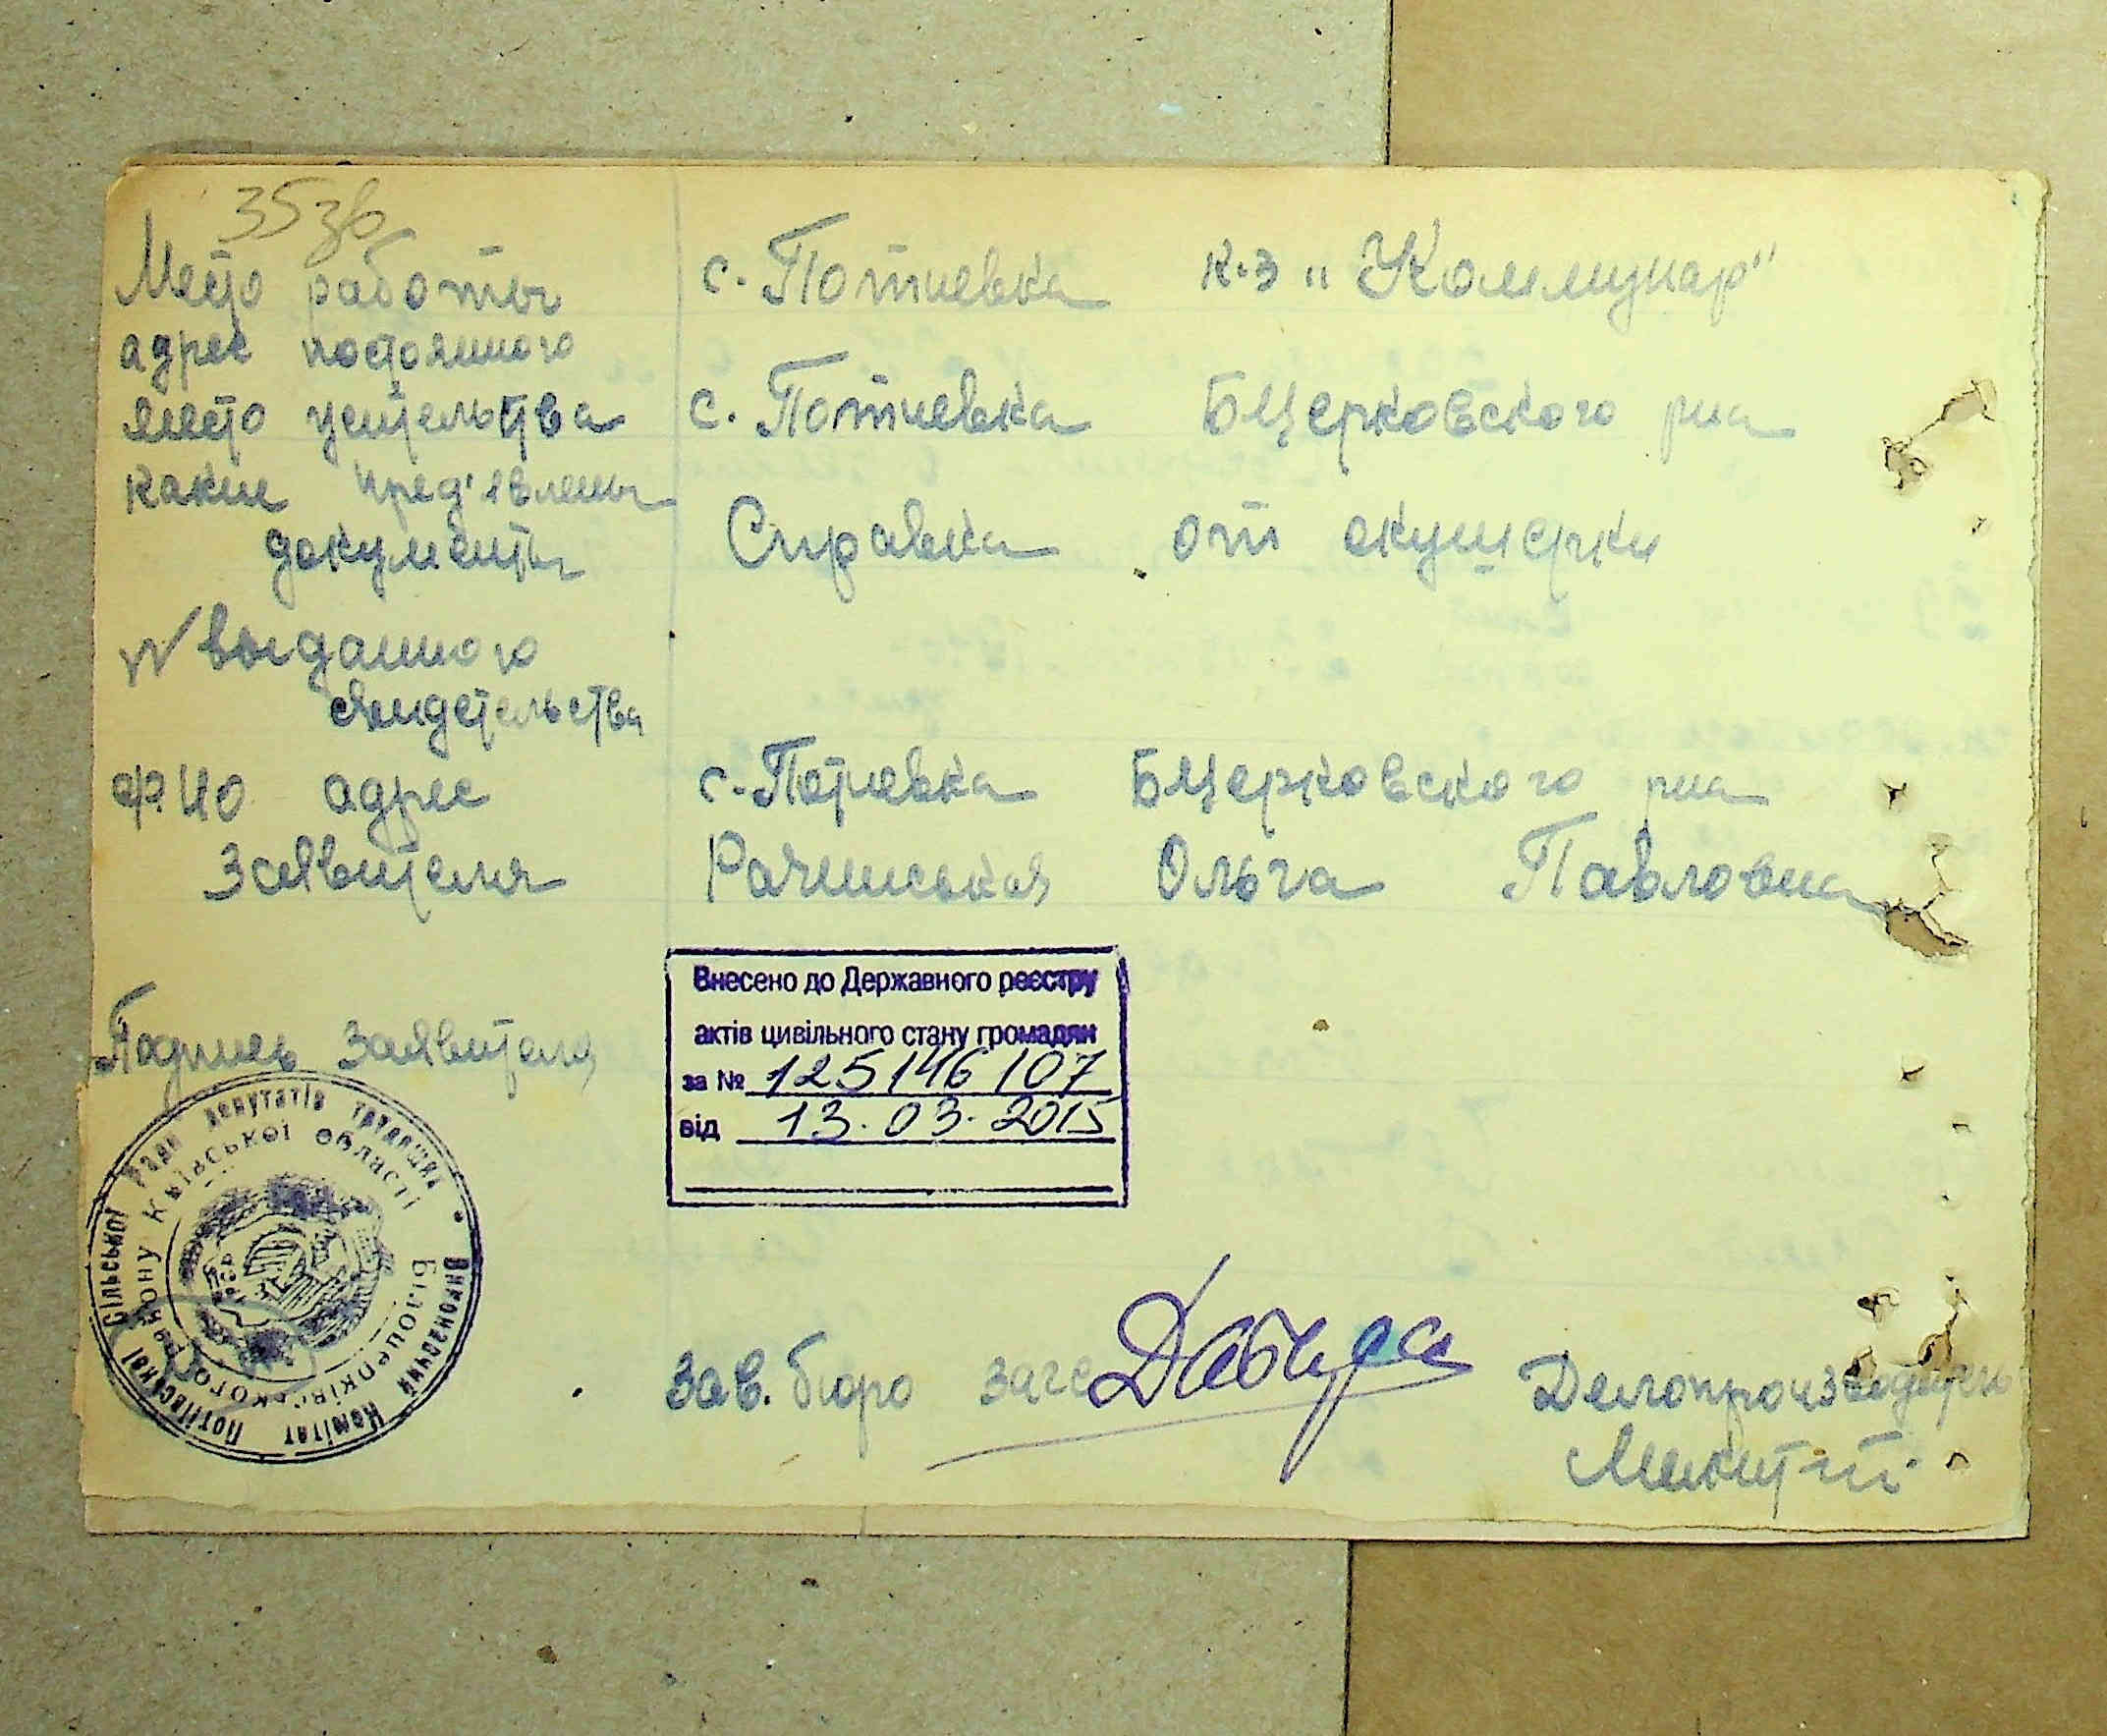 35зв
Место работы с. Потиевка к-з "Коммунар"
адрес постоянного
место жительства с. Потиевка БЦерковского р-на
какие пред'явлены
документы Справка от акушерки
№ выданного
свидетельства
ФИО адрес с. Потиевка БЦерковского р-на
Заявителя Рачинськая Ольга Павловна
Внесено до Державного реєстру
актів цивільного стану громадян
за № 125146107
від 13.03.2015
Подпись Заявителя
Виконавчий Комітет Потіївської Сільської Ради депутатів трудящих
Білоцерківського району Київської області
УРСР
Зав. бюро загс Делопроизводитель